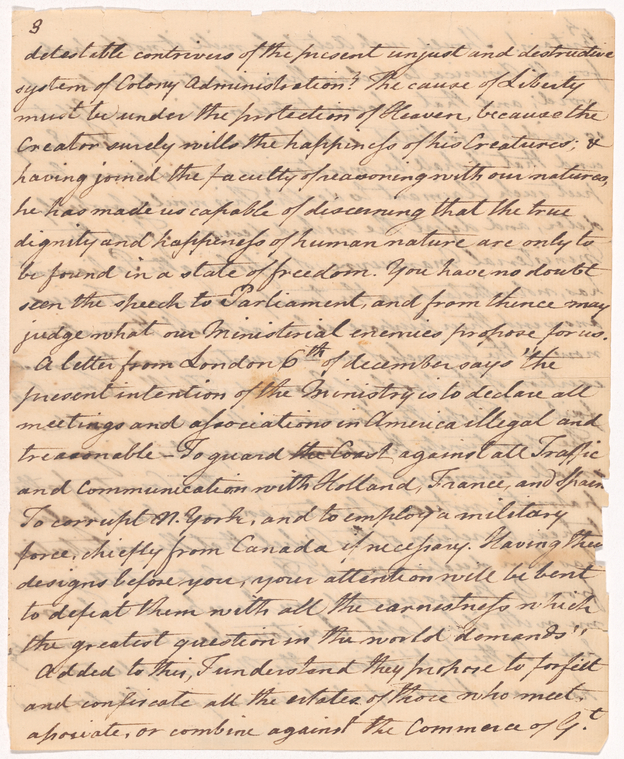 3
detestable contrivers of the present unjust and destructive
system of Colony Administration? The cause of Liberty
must be under the protection of Heaven, because the
Creator surely wills the happiness of his Creatures; &
having joined the faculty of reasoning with our natures,
he has made us capable of discerning that the true
dignity and happiness of human nature are only to
be found in a state of freedom. You have no doubt
seen the speech to Parliament, and from thence may
judge what our Ministerial enemies propose for us.
A letter from London 6th of december says "the
present intention of the Ministry is to declare all
meetings and associations in America illegal and
treasonable - To guard the Coast against all Traffic
and communication with Holland, France, and Spain
To corrupt N. York, and to employ a military
force, chiefly from Canada if necessary. Having these
designs before you, your attention will be bent
to defeat them with all the earnestness which
the greatest question in the world demands"
Added to this, I understand they propose to forfeit
and confiscate all the estates of those who meet,
associate, or combine against the Commerce of G.t